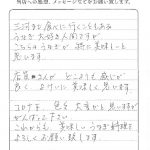 当店への感想、メッセージなどをお願い致します。
三河まで食べに行くこともある
うなぎ大好き人間ですが
こちらのうなぎが特に美味しいと
思います。
店員さんが とこても感じが
良く よけいに美味しく思います
コロナ下、色々大変かと思いますが
がんばって下さい
これからも 美味しいうなぎ料理を
よろしくお願い致します